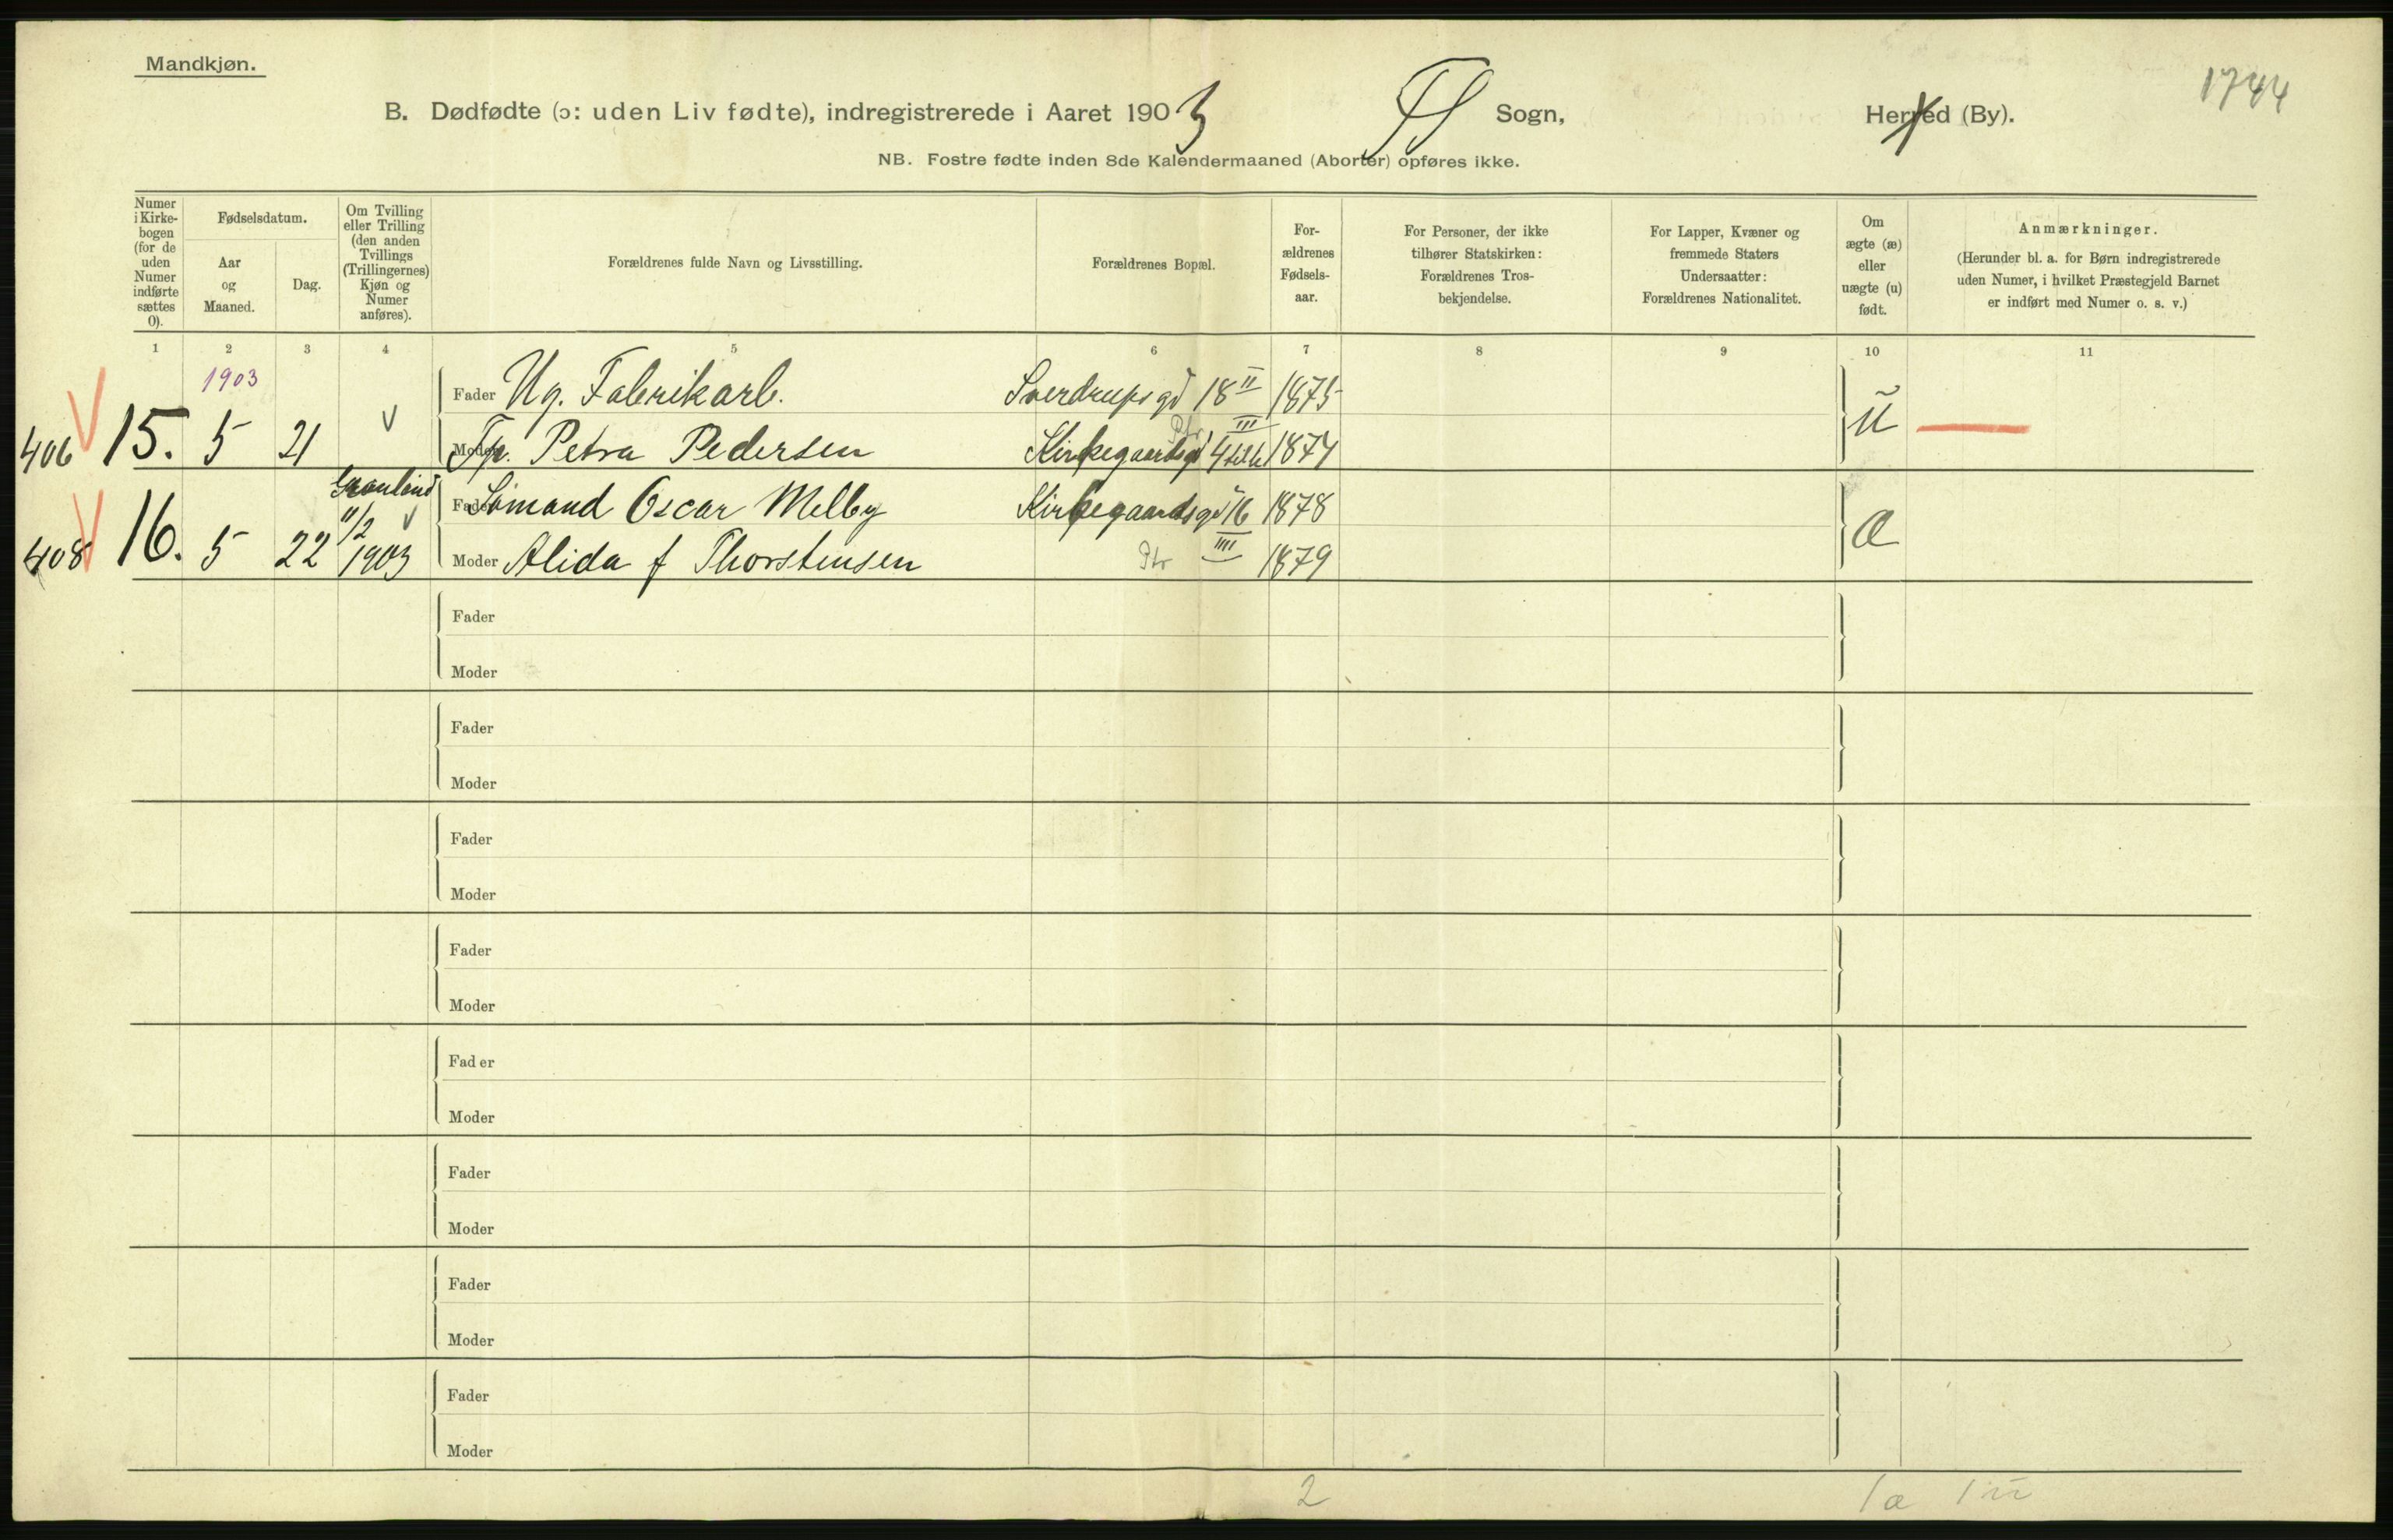 Mandkjøn.
1744
B. Dødfødte (ɔ: uden Liv fødte), indregistrerede i Aaret 1903 Sogn, Herred (By).
NB. Fostre fødte inden 8de Kalendermaaned (Aborter) opføres ikke.
Numer i Kirke-bogen (for de uden Numer indførte sættes 0).
Fødselsdatum.
Aar og Maaned.
Dag.
Om Tvilling eller Trilling (den anden Tvillings (Trillingernes) Kjøn og Numer anføres).
Forældrenes fulde Navn og Livsstilling.
Forældrenes Bopæl.
For-ældrenes Fødsels-aar.
For Personer, der ikke tilhører Statskirken: Forældrenes Tros-bekjendelse.
For Lapper, Kvæner og fremmede Staters Undersaatter: Forældrenes Nationalitet.
Om ægte (æ) eller uægte (u) født.
Anmærkninger.
(Herunder bl. a. for Børn indregistrerede uden Numer, i hvilket Præstegjeld Barnet er indført med Numer o. s. v.)
1 2 3 4 5 6 7 8 9 10 11
1903
Fader Ug. Fabrikarb. Sverdrupsgd 18 II 1875
406 15. 5 21 Moder Tp. Petra Pedersen Kirkegaardsgd 4 III 1874 u
Fader Sømand Oscar Melby Kirkegaardsgd 16 1878
408 16. 5 22 11/2 1903 Moder Alida f Thorstensen IIII 1879 æ
Fader
Moder
Fader
Moder
Fader
Moder
Fader
Moder
Fader
Moder
Fader
Moder
Fader
Moder
Fader
Moder
2 1æ 1u